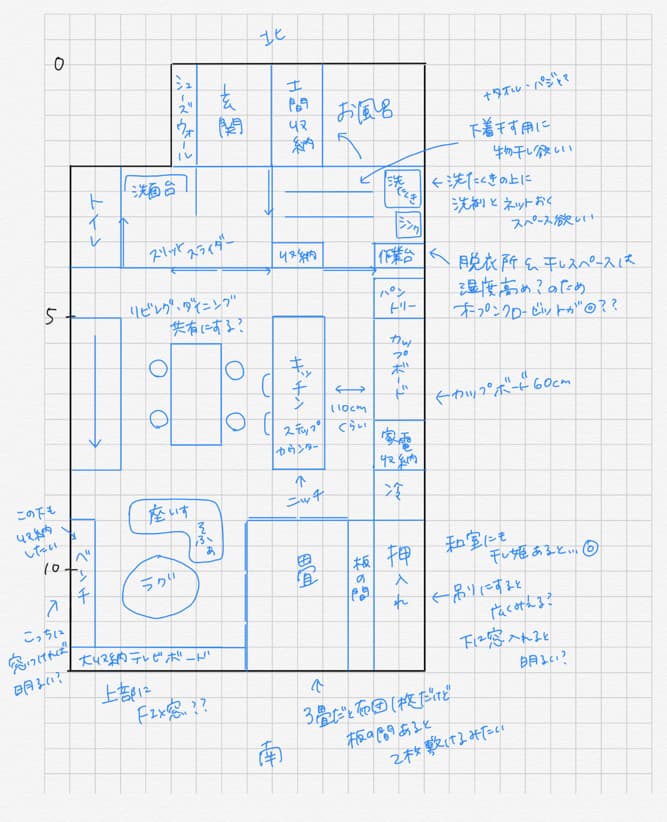 北
0
シューズウォール
玄関
土間収納
お風呂
+タオル・パジャマ
下着干す用に
物干し欲しい
トイレ
洗面台
洗たくき
シンク
←洗たくきの上に
洗剤とネットおく
スペース欲しい
スリットスライダー
収納
作業台
脱衣所&干しスペースは
湿度高め?のため
オープンクローゼットが◎??
5
リビング・ダイニング
共有にする?
パントリー
キッチン
ステップ
カウンター
110cm
くらい
カップボード
←カップボード60cm
家電
収納
冷
ニッチ
この下も
収納
したい
ベンチ
座いす
そふぁ
ラグ
10
畳
板の間
押入れ
和室にも
干し姫あると…◎
←吊りにすると
広くみえる?
下に窓入れると
明るい?
こっちに
窓つければ
明るい?
大収納テレビボード
上部に
FIX窓??
3畳だと布団1枚だけど
板の間あると
2枚敷けるみたい
南